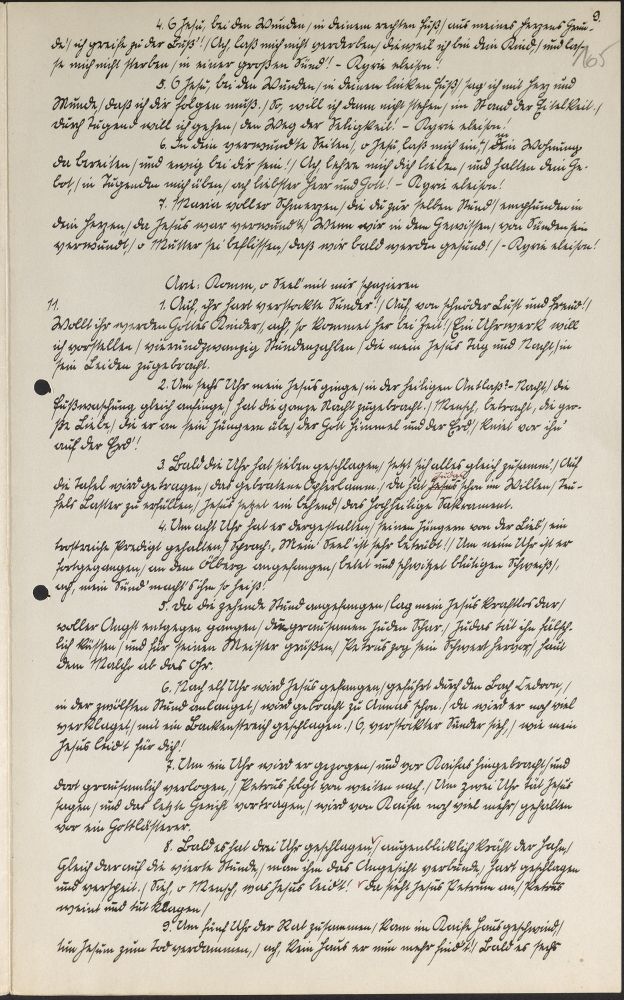 9.
165
4. O Jesu, bei den Wunden / in deinem rechten Fuß / aus meines Herzens Grun-
de / ich greife zu der Buß'! / Ach, laß mich nicht verderben / dieweil ich bin dein Kind / und las-
se mich nicht sterben / in einer großen Sünd'! - Kyrie eleison!
5. O Jesu, bei den Wunden / in deinem linken Fuß / sag' ich mit Herz und
Munde / daß ich dir folgen muß. / So, will ich dann nicht stehen / im Stand der Eitelkeit. /
Durch Tugend will ich gehen / den Weg der Seligkeit! - Kyrie eleison!
6. In dein verwund'te Seiten / o Jesu laß mich ein / dein Wohnung
da bereiten / und ewig bei dir sein! / Ach lehre mich dich lieben / und halten dein Ge-
bot / in Tugenden mich üben / ach liebster Herr und Gott! - Kyrie eleison!
7. Maria voller Schmerzen / die du zur selben Stund / empfunden in
dein Herzen / da Jesus war verwund't / Wenn wir in dem Gewissen / von Sünden sein
verwundt / o Mutter sei beflissen / daß wir bald werden gesund! / - Kyrie eleison!
Arie: Komm, o Seel' mit mir spazieren
11.
1. Auf, ihr hart verstockte Sünder! / Auf, von schnöder Lust und Freud'! /
Wollt ihr werden Gottes Kinder / ach, so kommet her bei Zeit! / Ein Uhrwerk will
ich vorstellen / vierundzwanzig Stundenzahlen / die mein Jesus Tag und Nacht / in
sein Leiden zugebracht.
2. Um sechs Uhr mein Jesus ginge / in der heiligen Antlaß-Nacht / die
Fußwaschung gleich anfinge / hat die ganze Nacht zugebracht. / Mensch, betracht, die gro-
ße Liebe / die er an sein Jüngern übe / der Gott Himmel und der Erd' / kniet vor ihn'
auf der Erd'!
3. Bald die Uhr hat sieben geschlagen / setzt sich alles gleich zusamm' / Auf
die Tafel wird getragen / das gebratene Osterlamm / Da hat Judas schon im Willen / Teu-
fels Laster zu erfüllen / Jesus setzet ein behend / das hochheilige Sakrament.
4. Um acht Uhr hat er dergestalten / seinen Jüngern von der Lieb' / ein
trostreiche Predigt gehalten / sprach: "Mein' Seel' ist sehr betrübt! / Um neun Uhr ist er
fortgegangen / an dem Ölberg angefangen / betet und schwitzet blutigen Schweiß /
ach, mein Sünd' macht's ihm so heiß!
5. Da die zehende Stund angefangen / lag mein Jesus kraftlos dar /
voller Angst entgegen gangen / der grausamen Juden Schar / Judas tät ihn fälsch-
lich küssen / und für seinen Meister grüßen / Petrus zog sein Schwert hervor / haut
dem Malcho ab das Ohr.
6. Nach elf Uhr wird Jesus gefangen / geführt durch den Bach Cedron /
in der zwölften Stund anlanget / wird gebracht zu Annas schon. / Da wird er noch viel
verklaget / mit ein Backenstreich geschlagen. / O, verstockter Sünder sieh / wie mein
Jesus leid't für dich!
7. Um ein Uhr wird er gezogen / und vor Kaifas hingebracht / und
dort grausamlich verlogen / Petrus folgt von weiten nach. / Um zwei Uhr tut Jesus
sagen / und das letzte Gericht vortragen / wird von Kaifa noch viel mehr / gehalten
vor ein Gottlästerer.
8. Bald es hat drei Uhr geschlagen / augenblicklich kräht der Hahn /
Gleich darauf die vierte Stunde / man ihm das Angesicht verbunde / hart geschlagen
und verspeit. / Sieh, o Mensch, was Jesus leidt! / Da sieht Jesus Petrum an / Petrus
weint und tut klagen /
9. Um fünf Uhr der Rat zusammen / kam im Kaifa Haus geschwind /
tun Jesum zum Tod verdammen / ach, kein Haus er nun mehr find't! / Bald es sechs